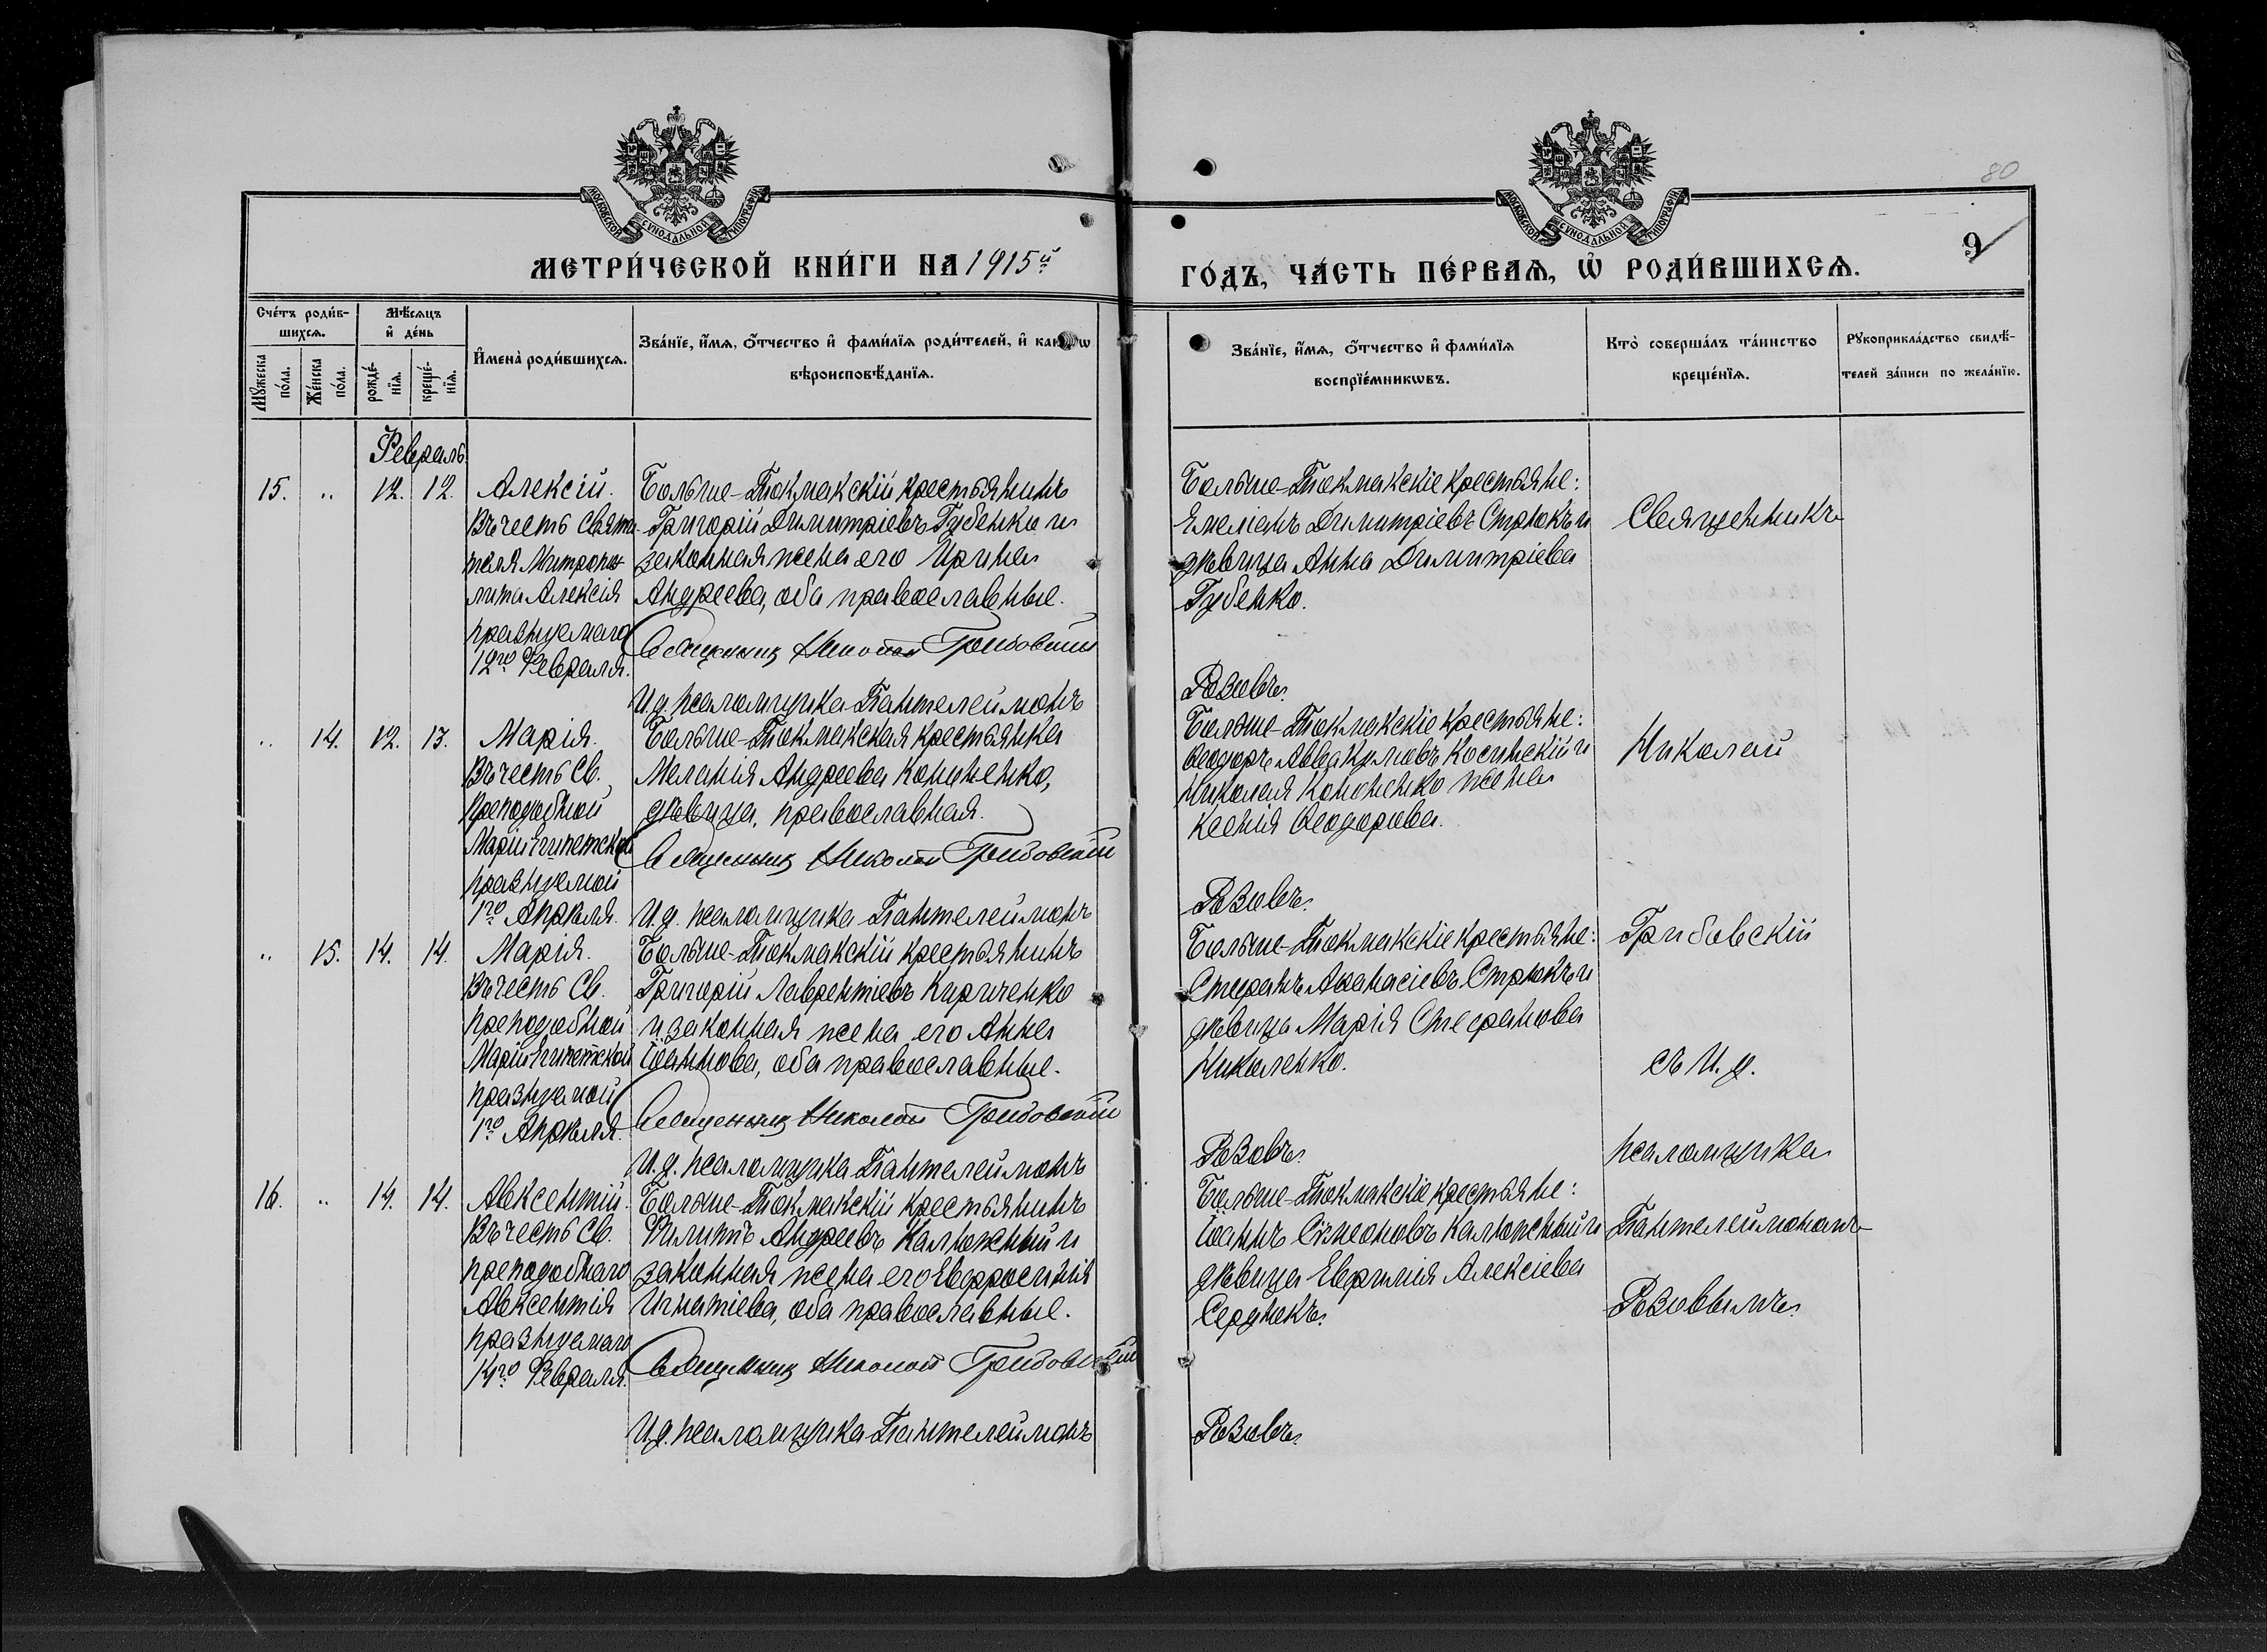 80
9
МОСКОВСКОЙ СѴНОДАЛЬНОЙ ТИПОГРАФІИ
МОСКОВСКОЙ СѴНОДАЛЬНОЙ ТИПОГРАФІИ
МЕТРИ́ЧЕСКОЙ КНИ́ГИ НА 1915й
ГО́ДЪ, ЧА́СТЬ ПЕ́РВАѦ, Ѡ҆ РОДИ́ВШИХСѦ.
Сче́тъ роди́в-
шихсѧ.
Мꙋ́жеска
по́ла.
Же́нска
по́ла.
Мѣ́сѧцъ
и҆ де́нь
рожде́-
нїѧ.
креще́-
нїѧ.
И҆мена̀ роди́вшихсѧ.
Зва́нїе, и҆́мѧ, ѻ҆́тчество и҆ фами́лїѧ роди́телей, и҆ како́гѡ
вѣроисповѣ́данїѧ.
Зва́нїе, и҆́мѧ, ѻ҆́тчество и҆ фами́лїѧ
воспрїе́мникѡвъ.
Кто̀ соверша́лъ та́инство
креще́нїѧ.
Рꙋкоприкла́дство свидѣ́-
телей за́писи по жела́нїю.
Февраль.
15. „ 12. 12. Алексій.
Въ честь Святи-
теля Митропо-
лита Алексія
празнуемаго
12го Февраля.
Больше-Токмакскій крестьянинъ
Григорій Димитріевъ Губенко и
законная жена его Ирина
Андреева, оба православные.
Священникъ Николай Грибовскій
И.д. псаломщика Пантелеймонъ
Больше-Токмакскіе крестьяне:
Емеліанъ Димитріевъ Стрюкъ и
дѣвица Анна Димитріева
Губенко.
Розовъ.
Священникъ
„ 14. 12. 13. Марія.
Въ честь Св.
Преподобной
Маріи Египетской
празнуемой
1го Апрѣля.
Больше-Токмакская крестьянка
Меланія Андреева Кононенко,
дѣвица, православная.
Священникъ Николай Грибовскій
И.д. псаломщика Пантелеймонъ
Больше-Токмакскіе крестьяне:
Ѳеодоръ Аввакумовъ Косинскій и
Николая Кононенко жена
Ксенія Ѳеодорова.
Розовъ.
Николай
„ 15. 14. 14. Марія.
Въ честь Св.
преподобной
Маріи Египетской
празнуемой
1го Апрѣля.
Больше-Токмакскій крестьянинъ
Григорій Лаврентіевъ Кириченко
и законная жена его Анна
Іоаннова, оба православные.
Священникъ Николай Грибовскій
И.д. псаломщика Пантелеймонъ
Больше-Токмакскіе крестьяне:
Стефанъ Аѳанасіевъ Стрюкъ и
дѣвица Марія Стефанова
Николенко.
Розовъ.
Грибовскій
съ И.д.
псаломщика
16. „ 14. 14. Авксентій.
Въ честь Св.
преподобнаго
Авксентія
празнуемаго
14го Февраля.
Больше-Токмакскій крестьянинъ
Филиппъ Андреевъ Калюжный и
законная жена его Евфросинія
Игнатіева, оба православные.
Священникъ Николай Грибовскій
И.д. псаломщика Пантелеймонъ
Больше-Токмакскіе крестьяне:
Іоаннъ Сѵмеоновъ Калюжный и
дѣвица Евфимія Алексіева
Сердюкъ.
Розовъ.
Пантелеймономъ
Розовымъ.